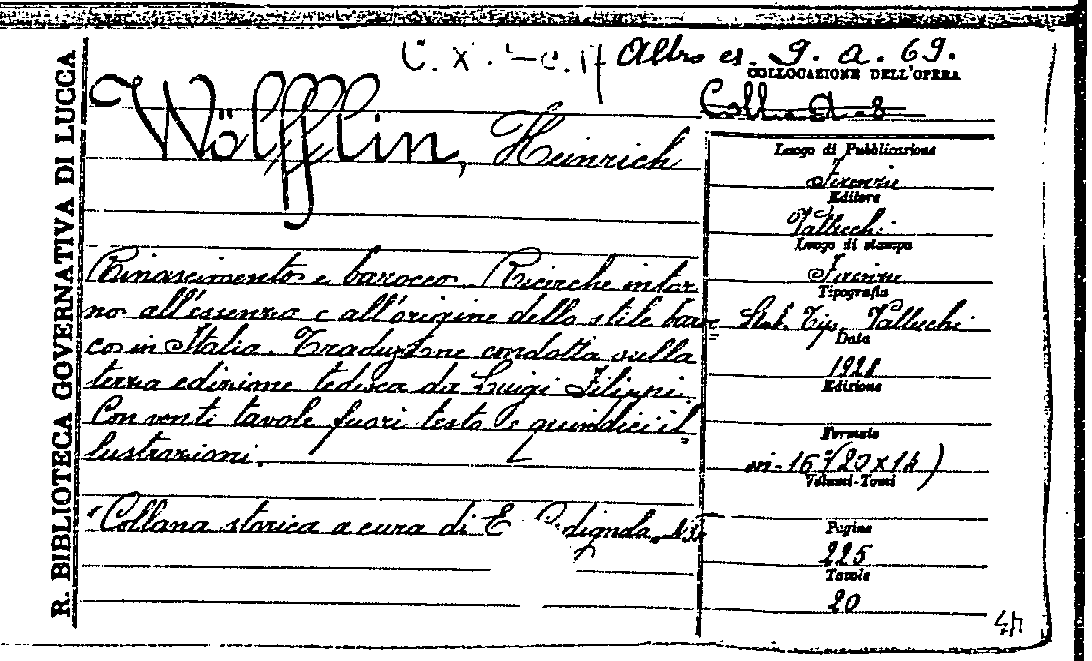 R. BIBLIOTECA GOVERNATIVA DI LUCCA
Altro es. 9. a. 69.
COLLOCAZIONE DELL'OPERA
Coll. A-8
Wölfflin, Heinrich
Rinascimento e barocco. Ricerche intor
no all'essenza e all'origine dello stile baroc=
co in Italia. Traduzione condotta sulla
terza edizione tedesca da Luigi Filippi.
Con venti tavole fuori testo e quindici il=
lustrazioni.
"Collana storica a cura di E. Codignola"
Luogo di Pubblicazione
Firenze
Editore
Vallecchi
Luogo di stampa
Firenze
Tipografia
Stab. Tip. Vallecchi
Data
1928
Edizione
Formato
in-16° (20x14)
Volumi-Tomi
Pagine
225
Tavole
20